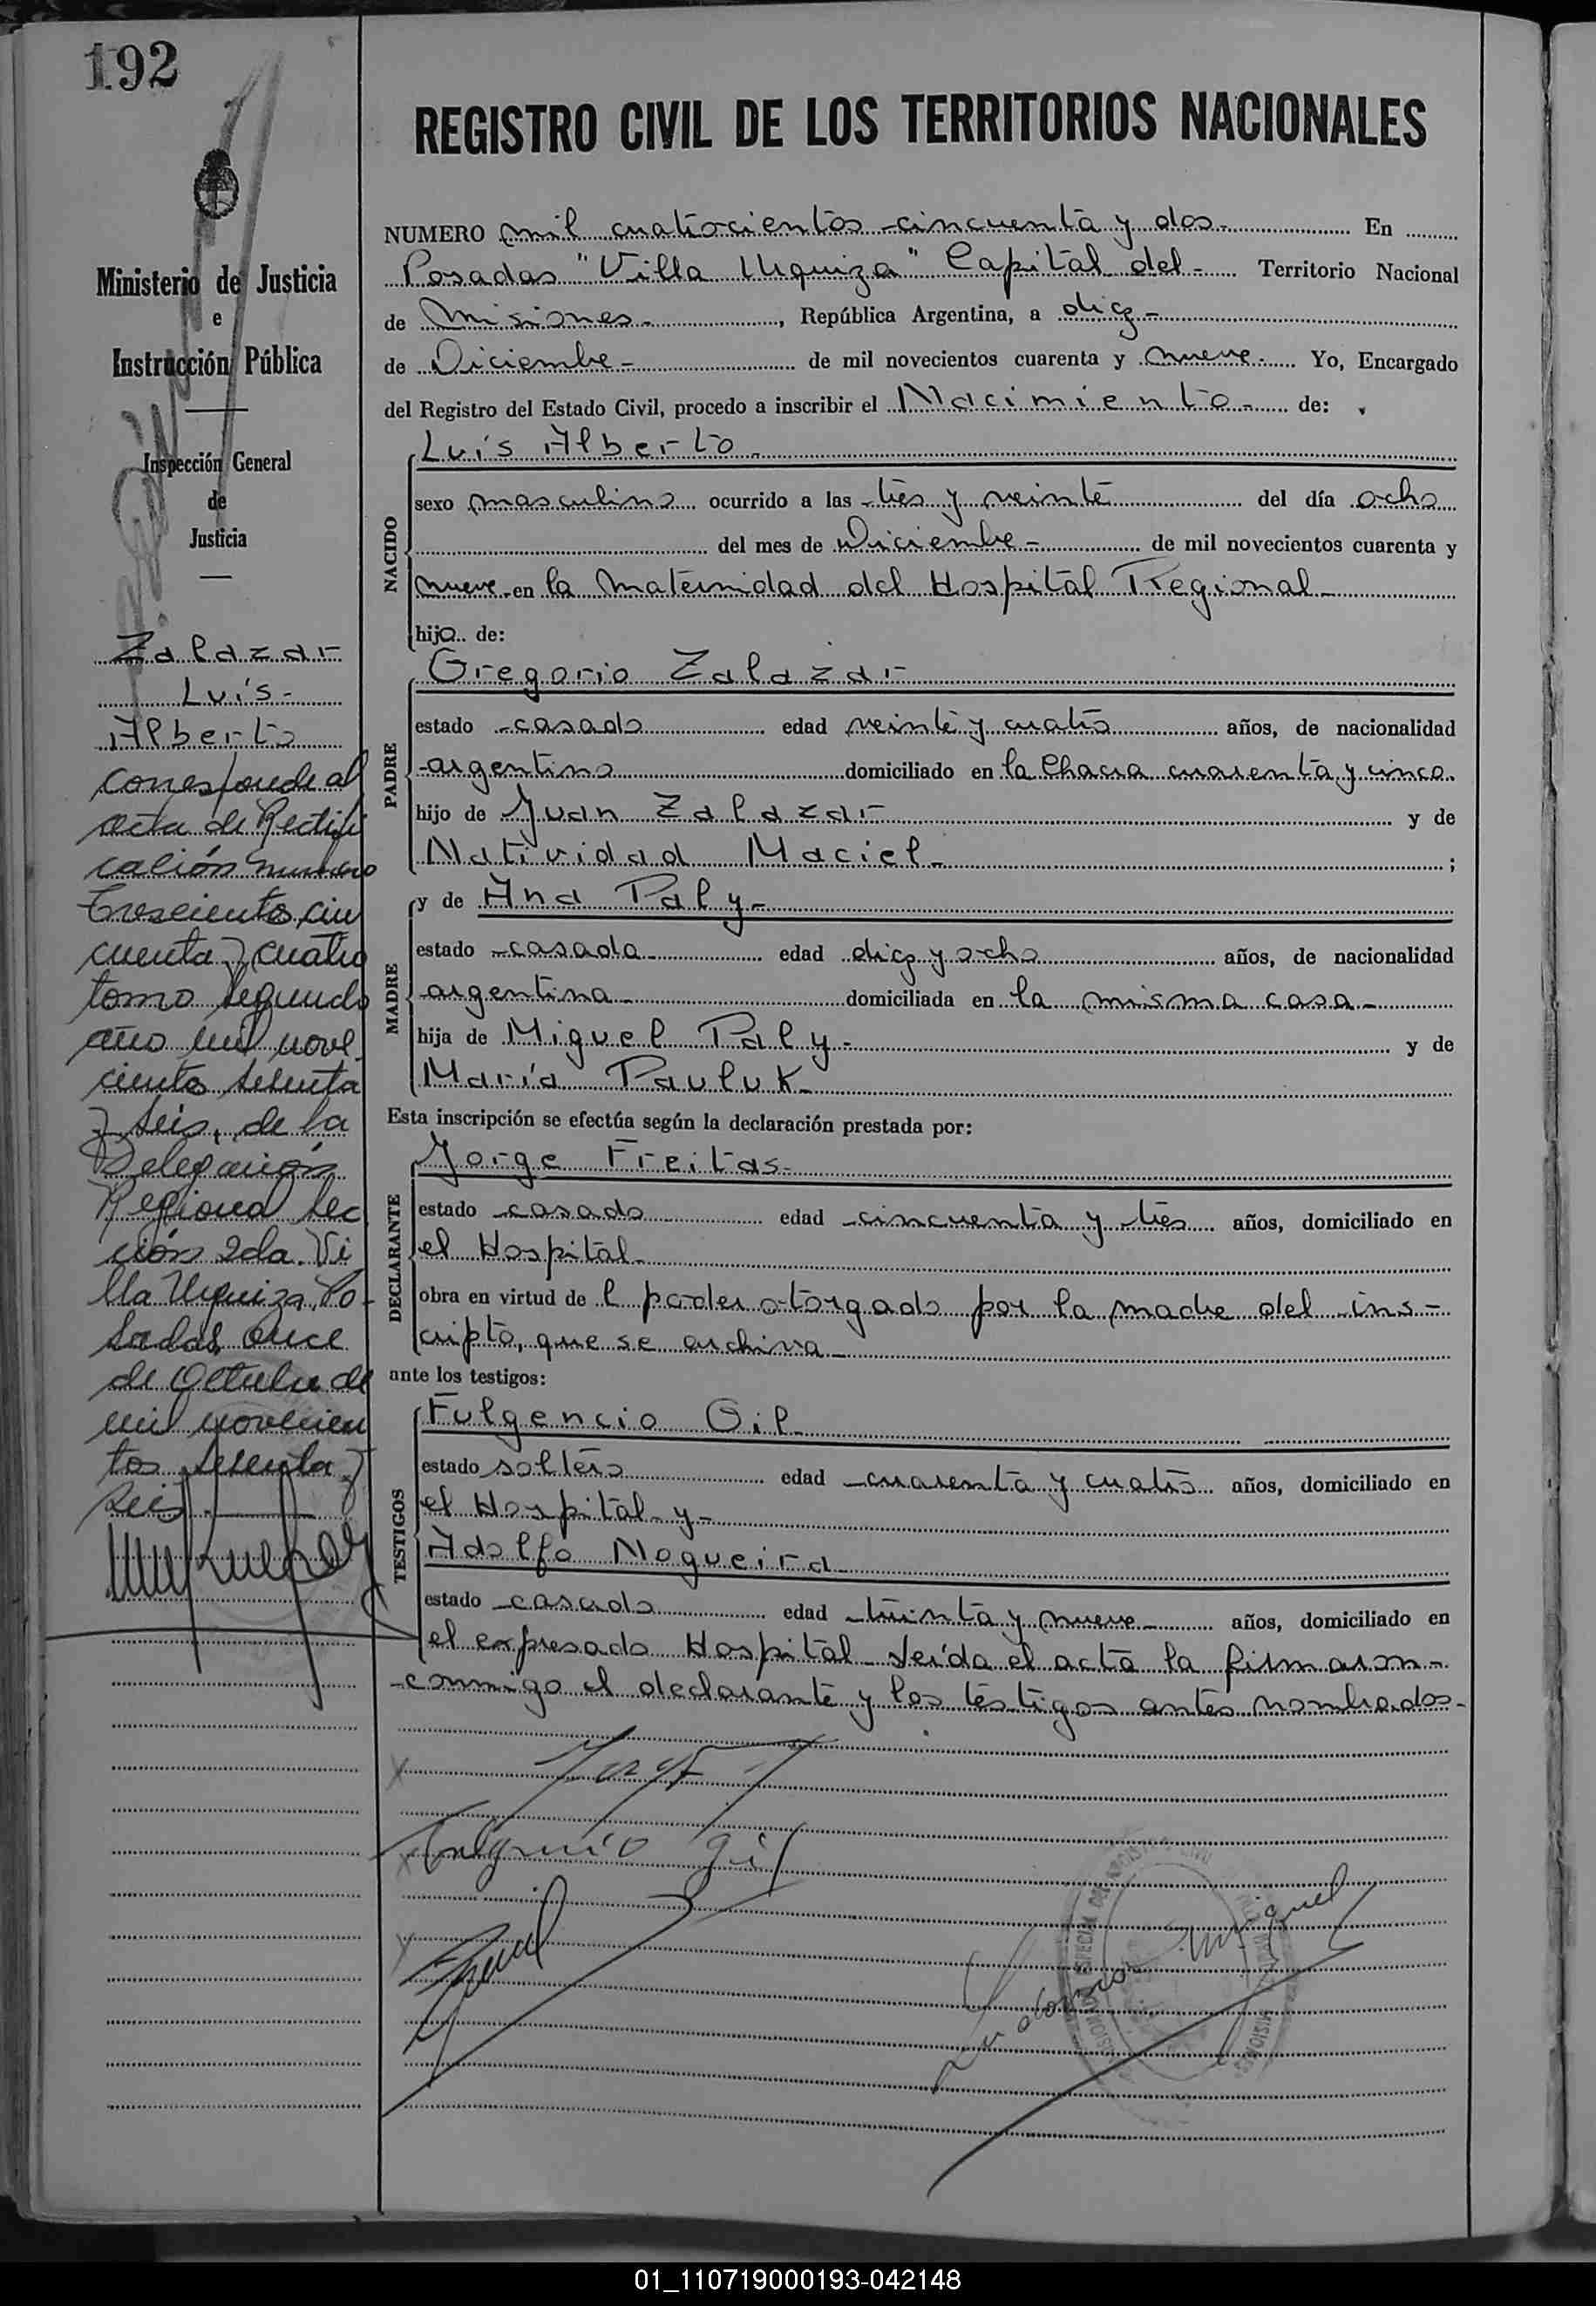 192
REGISTRO CIVIL DE LOS TERRITORIOS NACIONALES
Ministerio de Justicia
e
Instrucción Pública
Inspección General
de
Justicia
Zalazar
Luis-
Alberto
corresponde al
acta de Rectifi
cación numero
trescientos cin
cuenta y cuatro
tomo segundo
año mil nove-
cientos sesenta
y seis, de la
Delegación
Regional Sec
ción 2da. Vi
lla Urquiza, Po-
sadas, once
de Octubre de
mil novecien
tos sesenta y
seis.-
NUMERO mil cuatrocientos cincuenta y dos- En
Posadas "Villa Urquiza" Capital del- Territorio Nacional
de Misiones-, República Argentina, a diez-
de Diciembre- de mil novecientos cuarenta y nueve- Yo, Encargado
del Registro del Estado Civil, procedo a inscribir el Nacimiento- de:
NACIDO
Luis Alberto-
sexo masculino ocurrido a las tres y veinte del día ocho
del mes de Diciembre- de mil novecientos cuarenta y
nueve-en la Maternidad del Hospital Regional-
hijo de:
PADRE
Gregorio Zalazar
estado casado edad veinte y cuatro años, de nacionalidad
argentino domiciliado en la Chacra cuarenta y cinco.
hijo de Juan Zalazar y de
Natividad Maciel- ;
MADRE
y de Ana Paly-
estado casada- edad diez y ocho años, de nacionalidad
argentina- domiciliada en la misma casa-
hija de Miguel Paly- y de
María Pauluk-
Esta inscripción se efectúa según la declaración prestada por:
DECLARANTE
Jorge Freitas-
estado casado edad cincuenta y tres años, domiciliado en
el Hospital-
obra en virtud de l poder otorgado por la madre del ins-
cripto, que se archiva-
ante los testigos:
TESTIGOS
Fulgencio Gil-
estado soltero edad cuarenta y cuatro años, domiciliado en
el Hospital- y-
Adolfo Nogueira-
estado casado edad treinta y nueve- años, domiciliado en
el expresado Hospital- Leída el acta la firmaron-
conmigo el declarante y los testigos antes nombrados-
Fulgencio Gil
01_110719000193-042148